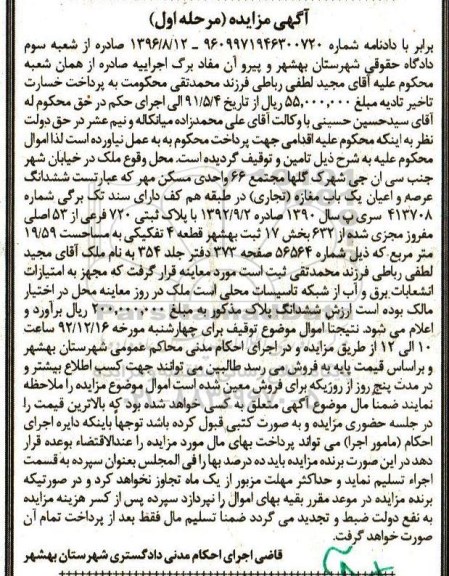 آگهی مزایده (مرحله اول)
برابر با دادنامه شماره ۹۶۰۹۹۷۱۹۴۶۳۰۰۷۲۰ ــ ۱۳۹۶/۸/۱۲ صادره از شعبه سوم
دادگاه حقوقی شهرستان بهشهر و پیرو آن مفاد برگ اجراییه صادره از همان شعبه
محکوم علیه آقای مجید لطفی رباطی فرزند محمدتقی محکومت به پرداخت خسارت
تاخیر تادیه مبلغ ۵۵,۰۰۰,۰۰۰ ریال از تاریخ ۹۱/۵/۴ الی اجرای حکم در حق محکوم له
آقای سیدحسین حسینی با وکالت آقای علی محمدزاده میانکاله و نیم عشر در حق دولت
نظر به اینکه محکوم علیه اقدامی جهت پرداخت محکوم به به عمل نیاورده است لذا اموال
محکوم علیه به شرح ذیل تامین و توقیف گردیده است. محل وقوع ملک در خیابان شهر
جنب سی ان جی شهرک گلها مجتمع ۶۶ واحدی مسکن مهر که عبارتست ششدانگ
عرصه و اعیان یک باب مغازه (تجاری) در طبقه هم کف دارای سند تک برگی شماره
۴۱۳۷۰۸ سری د سال ۱۳۹۰ صادره ۱۳۹۲/۹/۲ با پلاک ثبتی ۷۲۰ فرعی از ۵۳ اصلی
مفروز مجزی شده از ۶۳۲ بخش ۱۷ ثبت بهشهر قطعه ۴ تفکیکی به مساحست ۱۹/۵۹
متر مربع که ذیل شماره ۵۶۵۶۴ صفحه ۳۷۳ دفتر جلد ۳۵۴ به نام ملک آقای مجید
لطفی رباطی فرزند محمدتقی ثبت است مورد معاینه قرار گرفت که مجهز به امتیازات
انشعابات برق و آب از شبکه تاسیسات محلی است ملک در روز معاینه محل در اختیار
مالک بوده است ارزش ششدانگ پلاک مذکور به مبلغ ۲۰۰,۰۰۰,۰۰۰ ریال برآورد و
اعلام می شود. نتیجتا اموال موضوع توقیف برای چهارشنبه مورخه ۹۲/۱۲/۱۶ ساعت
۱۰ الی ۱۲ از طریق مزایده و در اجرای احکام مدنی محاکم عمومی شهرستان بهشهر
و براساس قیمت پایه به فروش می رسد طالبین می توانند جهت کسب اطلاع بیشتر و
در مدت پنج روز از روزیکه برای فروش معین شده است اموال موضوع مزایده را ملاحظه
نمایند ضمنا مال موضوع آگهی متعلق به کسی خواهد شده بود که بالاترین قیمت را
در جلسه حضوری مزایده و به صورت کتبی قبول کرده باشد توجها باینکه دایره اجرای
احکام (مامور اجرا) می تواند پرداخت بهای مال مورد مزایده را عندالاقتضاء بوعده قرار
دهد در این صورت برنده مزایده باید ده درصد بها را فی المجلس بعنوان سپرده به قسمت
اجراء تسلیم نماید و حداکثر مهلت مزبور از یک ماه تجاوز نخواهد کرد و در صورتیکه
برنده مزایده در موعد مقرر بقیه بهای اموال را نپردازد سپرده پس از کسر هزینه مزایده
به نفع دولت ضبط و تجدید می گردد ضمنا تسلیم مال فقط بعد از پرداخت تمام آن
صورت خواهد گرفت.
قاضی اجرای احکام مدنی دادگستری شهرستان بهشهر